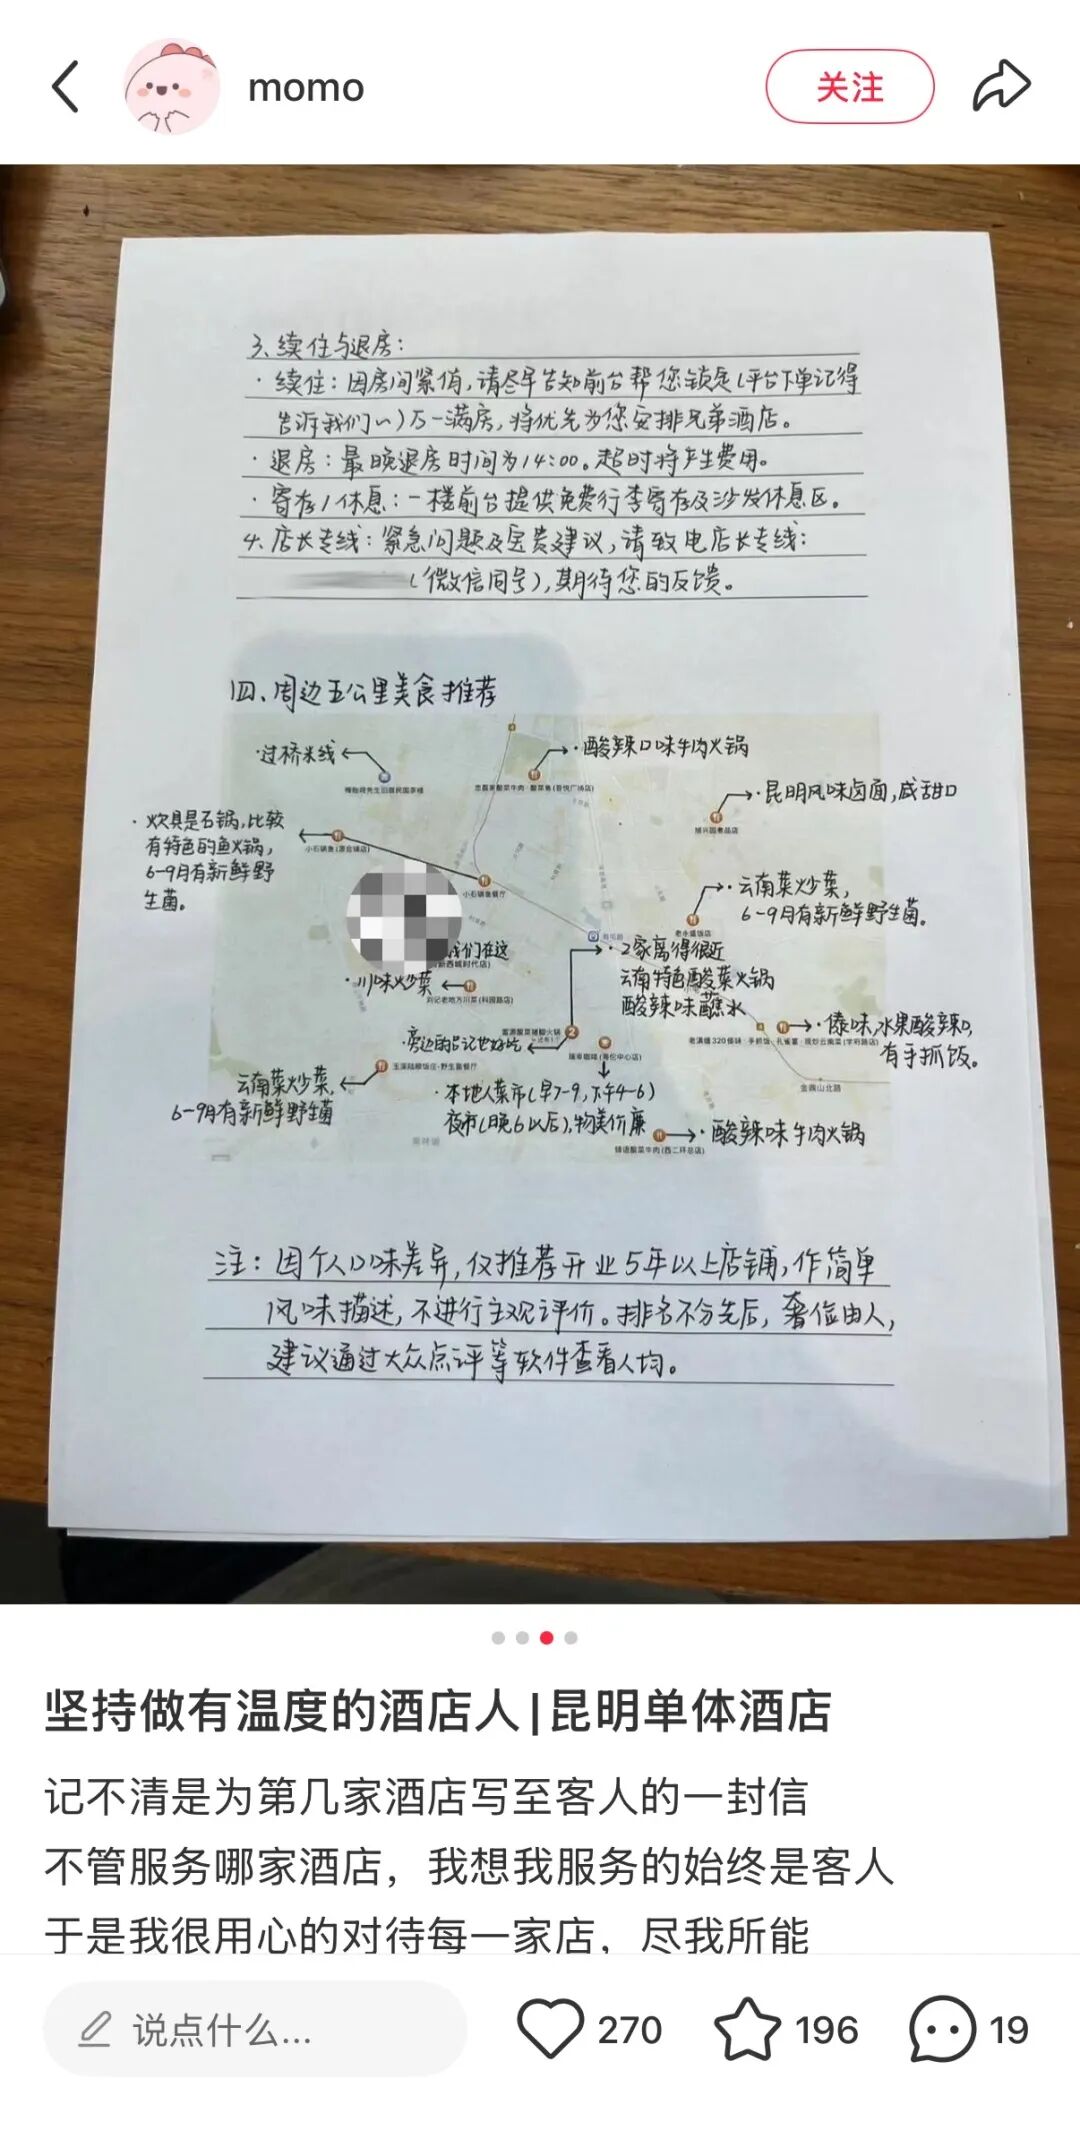 momo
关注
3、续住与退房：
·续住：因房间紧俏，请尽早告知前台帮您锁定（平台下单记得
告诉我们~）万一满房，将优先为您安排兄弟酒店。
·退房：最晚退房时间为14:00。超时将产生费用。
·寄存/休息：一楼前台提供免费行李寄存及沙发休息区。
4、店长专线：紧急问题及宝贵建议，请致电店长专线：
（微信同号），期待您的反馈。
四、周边五公里美食推荐
·过桥米线
·酸辣口味牛肉火锅
·昆明风味卤面，咸甜口
·炊具是石锅，比较
有特色的鱼火锅，
6-9月有新鲜野
生菌。
小石锅鱼餐厅
·云南菜炒菜，
6-9月有新鲜野生菌。
老永盛饭店
我们在这
·川味炒菜
刘记老地方川菜(科园路店)
·2家离得很近
云南特色酸菜火锅
酸辣味蘸水
旁边的吕记也好吃
·傣味，水果酸辣口，
有手抓饭。
金鼎山北路
云南菜炒菜，
6-9月有新鲜野生菌
·本地人菜市(早7-9，下午4-6)
夜市(晚6以后)，物美价廉
·酸辣味牛肉火锅
注：因个人口味差异，仅推荐开业5年以上店铺，作简单
风味描述，不进行主观评价。排名不分先后，奢俭由人，
建议通过大众点评等软件查看人均。
坚持做有温度的酒店人|昆明单体酒店
记不清是为第几家酒店写至客人的一封信
不管服务哪家酒店，我想我服务的始终是客人
于是我很用心的对待每一家店，尽我所能
说点什么...
270
196
19